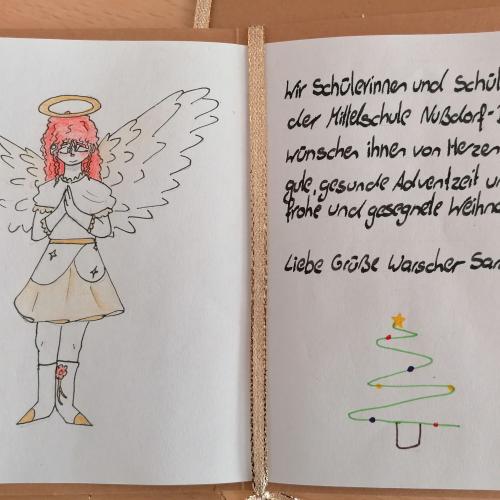 Wir Schülerinnen und Schül
der Mittelschule Nußdorf-
wünschen ihnen von Herzen
gute, gesunde Adventzeit un
frohe und gesegnete Weihna
Liebe Grüße Warscher Sar